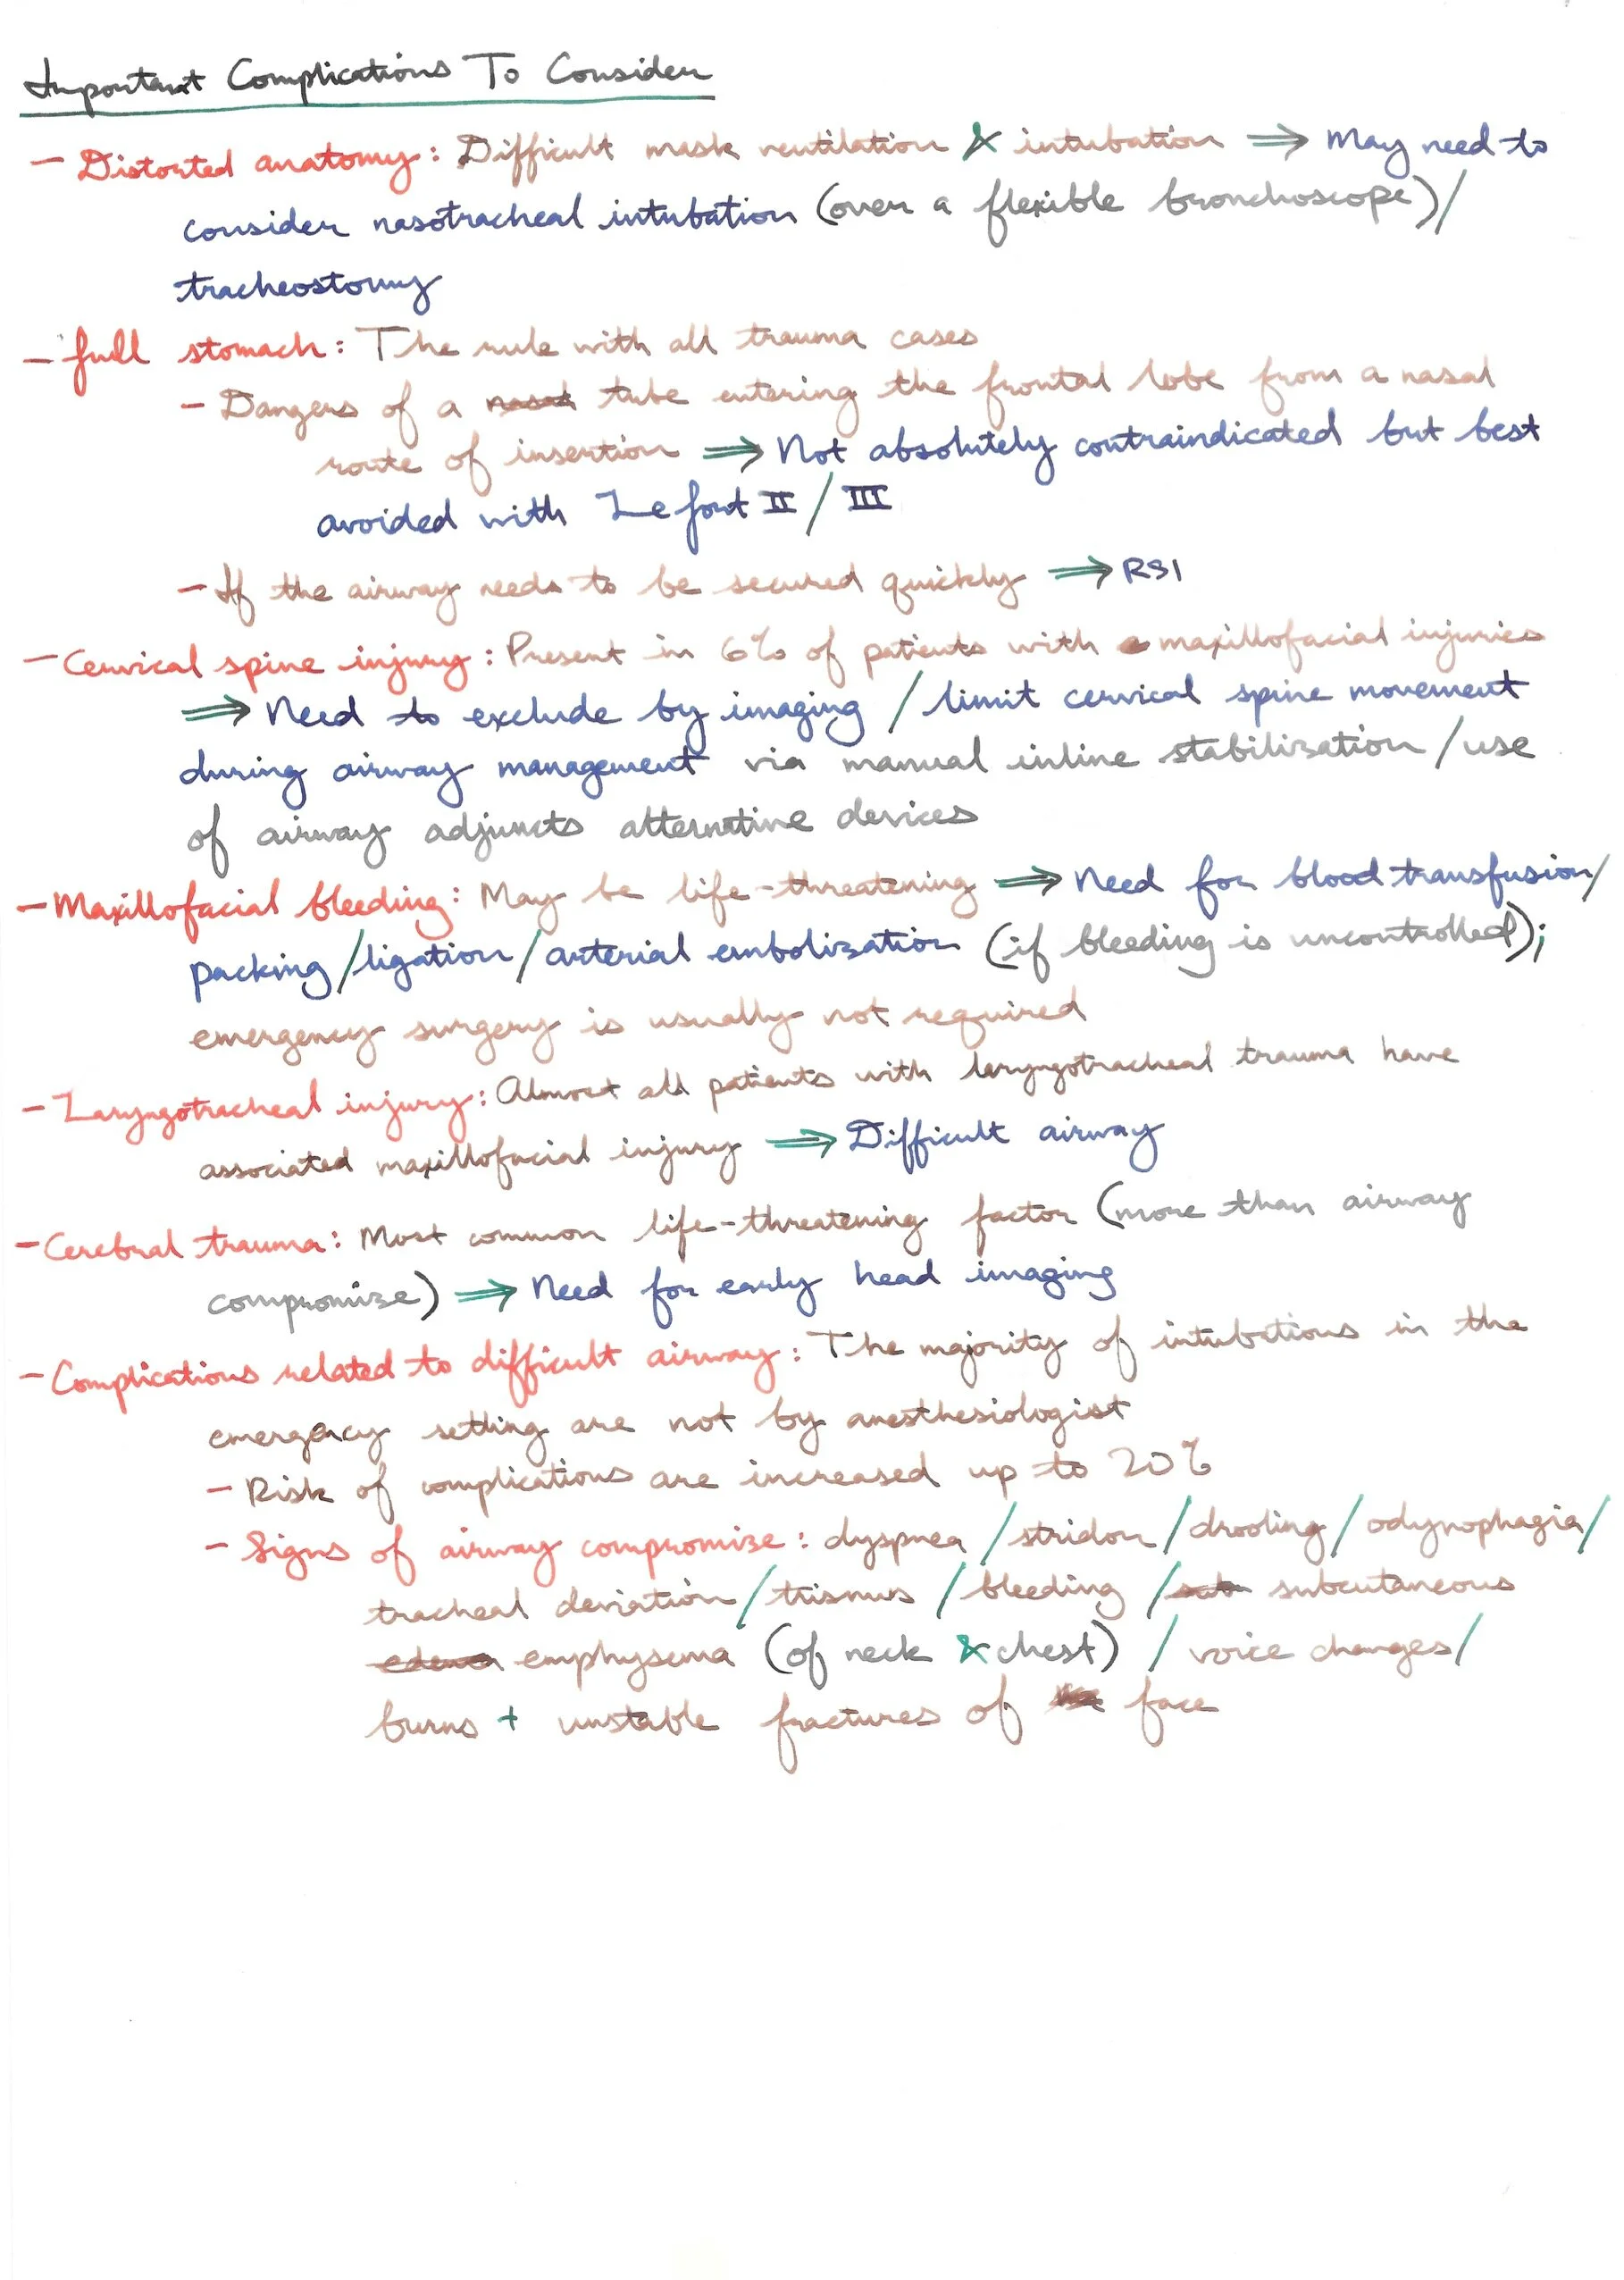 Important Complications To Consider
- Distorted anatomy: Difficult mask ventilation & intubation ⇒ May need to
consider nasotracheal intubation (over a flexible bronchoscope)/
tracheostomy
- full stomach: The rule with all trauma cases
- Dangers of a tube entering the frontal lobe from a nasal
route of insertion ⇒ Not absolutely contraindicated but best
avoided with Le fort II / III
- If the airway needs to be secured quickly ⇒ RSI
- Cervical spine injury: Present in 6% of patients with maxillofacial injuries
⇒ Need to exclude by imaging / limit cervical spine movement
during airway management via manual inline stabilization / use
of airway adjuncts alternative devices
- Maxillofacial bleeding: May be life-threatening ⇒ Need for blood transfusion/
packing / ligation / arterial embolization (if bleeding is uncontrolled);
emergency surgery is usually not required
- Laryngotracheal injury: Almost all patients with laryngotracheal trauma have
associated maxillofacial injury ⇒ Difficult airway
- Cerebral trauma: Most common life-threatening factor (more than airway
compromise) ⇒ Need for early head imaging
- Complications related to difficult airway: The majority of intubations in the
emergency setting are not by anesthesiologist
- Risk of complications are increased up to 20%
- Signs of airway compromise: dyspnea / stridor / drooling / odynophagia/
tracheal deviation / trismus / bleeding / subcutaneous
emphysema (of neck & chest) / voice changes/
burns + unstable fractures of face